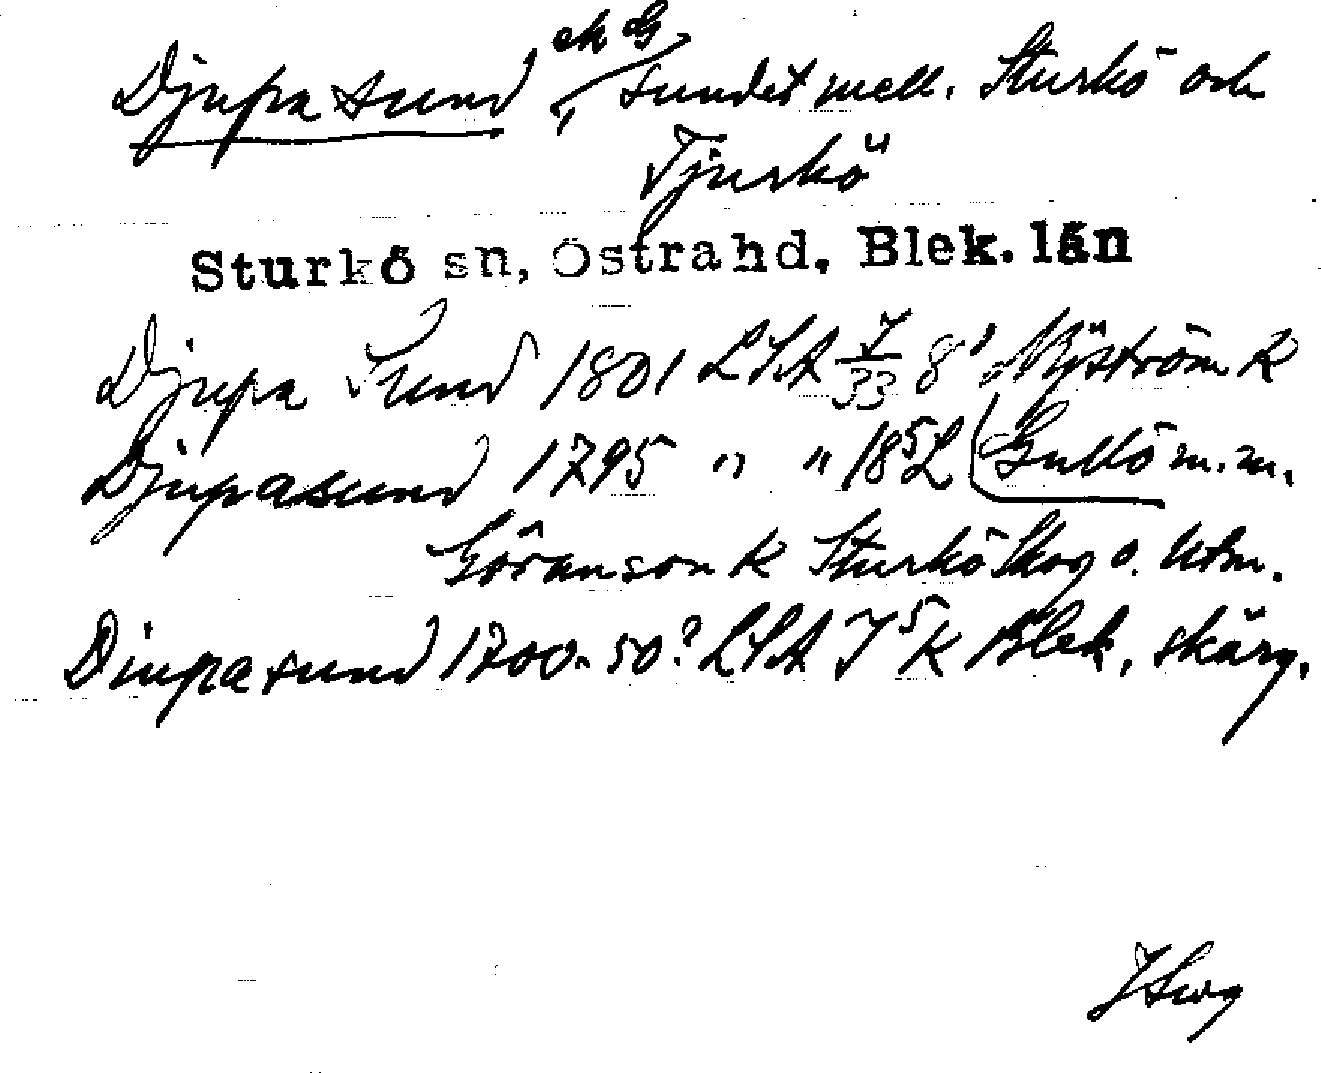 Djupasund, ek G sundet mell. Sturkö och
Tjurkö
Sturkö sn, Östra hd, Blek. län
Djupa Sund 1801 LSA 7/33 8' Nyström K
Djupasund 1795 " " 18⁵L Gullö m.m.
Göranson K Sturkö Skog o. Utm.
Diupasund 1700-50? LSA J⁵K Blek. skärg.